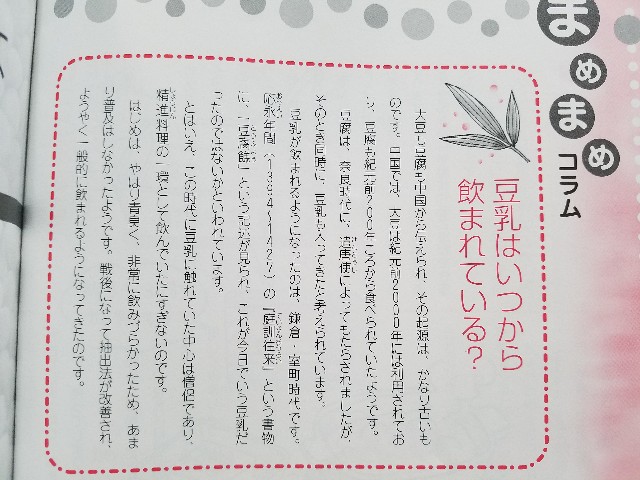 まめまめ
コラム
豆乳はいつから
飲まれている？
大豆も豆腐も中国から伝えられ、その起源は、かなり古いも
のです。中国では、大豆は紀元前2000年には利用されてお
り、豆腐も紀元前200年ごろから食べられていたようです。
豆腐は、奈良時代に、遣唐使によってもたらされましたが、
そのとき同時に、豆乳も入ってきたと考えられています。
豆乳が飲まれるようになったのは、鎌倉・室町時代です。
応永年間（1394〜1427）の『庭訓往来』という書物
に、「」という記述が見られ、これが今日でいう豆乳だ
ったのではないかといわれています。
とはいえ、この時代に豆乳に触れていた中心は僧侶であり、
精進料理の一環として飲んでいたにすぎないのです。
はじめは、やはり青臭く、非常に飲みづらかったため、あま
り普及はしなかったようです。戦後になって抽出法が改善され、
ようやく一般的に飲まれるようになってきたのです。